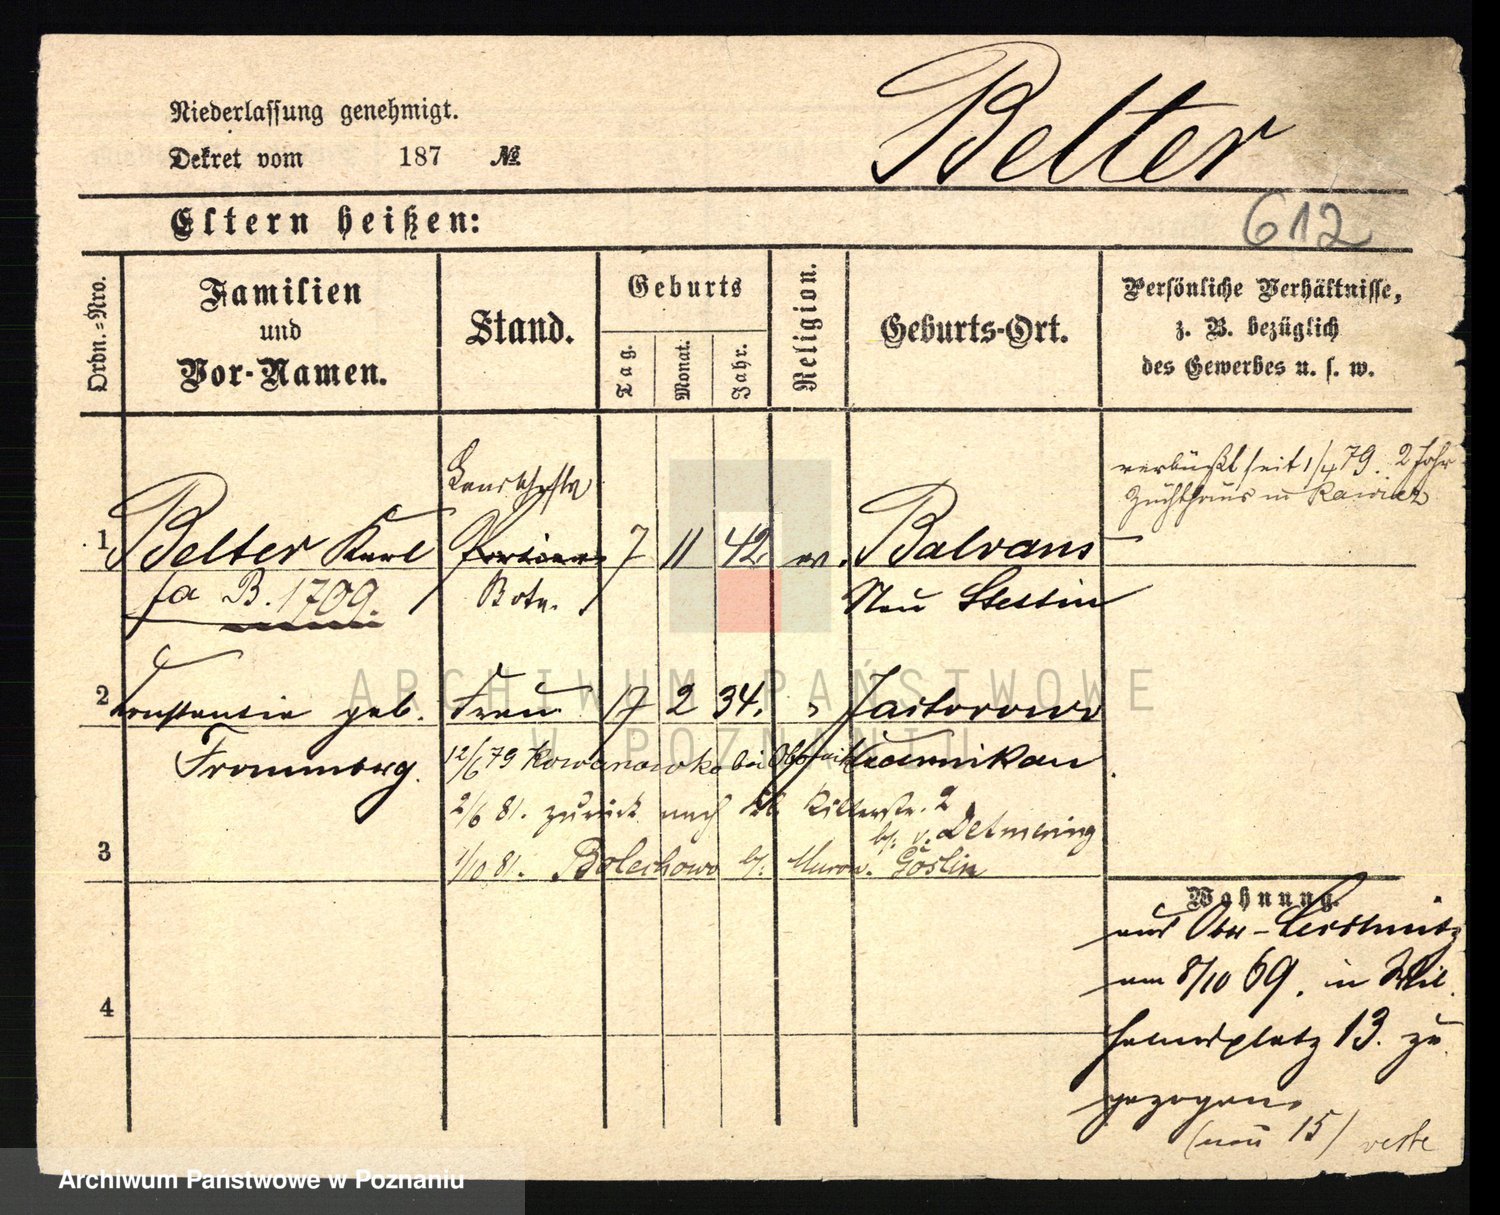 Niederlassung genehmigt.
Belter
Dekret vom 187 №
Eltern heißen:
612
Ordn.=Nro.
Familien
und
Vor-Namen.
Stand.
Geburts
Tag.
Monat.
Jahr.
Religion.
Geburts-Ort.
Persönliche Verhältnisse,
z. B. bezüglich
des Gewerbes u. s. w.
verbüßt seit 1/4 79. 2 Jahr
Zuchthaus in Rawicz
1 Belter Karl 7 11 42. ev. Balvans
fa B. 1709. Bote. Neu Stettin
2 Constantia geb. Frau 17 2 34. Jastorowo
Frommberg. 12/6 79 Kowanowko bei
2/6 81. zurück nach Ritterstr. 2
b/. v. Detmering
3 1/10 81. Bolechowo b/. Murow. Goslin
Wohnung.
aus Ober-
am 8/10 69. in Wil
helmsplatz 13. zu
gezogen.
(neu 15)
4
ARCHIWUM PAŃSTWOWE
W POZNANIU
Archiwum Państwowe w Poznaniu